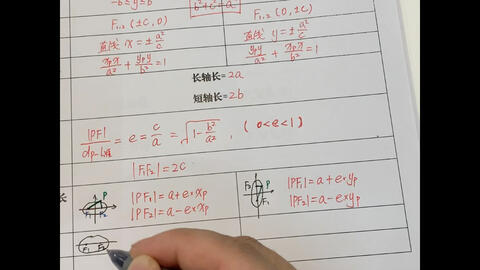 -b≤y≤b
b²+c²=a²
F₁,₂ (±C, 0)
F₁,₂ (0, ±C)
直线 x=±a²/c
直线 y=±a²/c
xₚx/a² + yₚy/b² = 1
yₚy/a² + xₚx/b² = 1
长轴长=2a
短轴长=2b
|PF|/dₚ₋ = e = c/a = √(1-b²/a²) , (0<e<1)
|F₁F₂|=2C
长
P
F₁ F₂
|PF₁|=a+e·xₚ
|PF₂|=a-e·xₚ
P
F₁
|PF₁|=a+e·yₚ
|PF₂|=a-e·yₚ
F₁ F₂